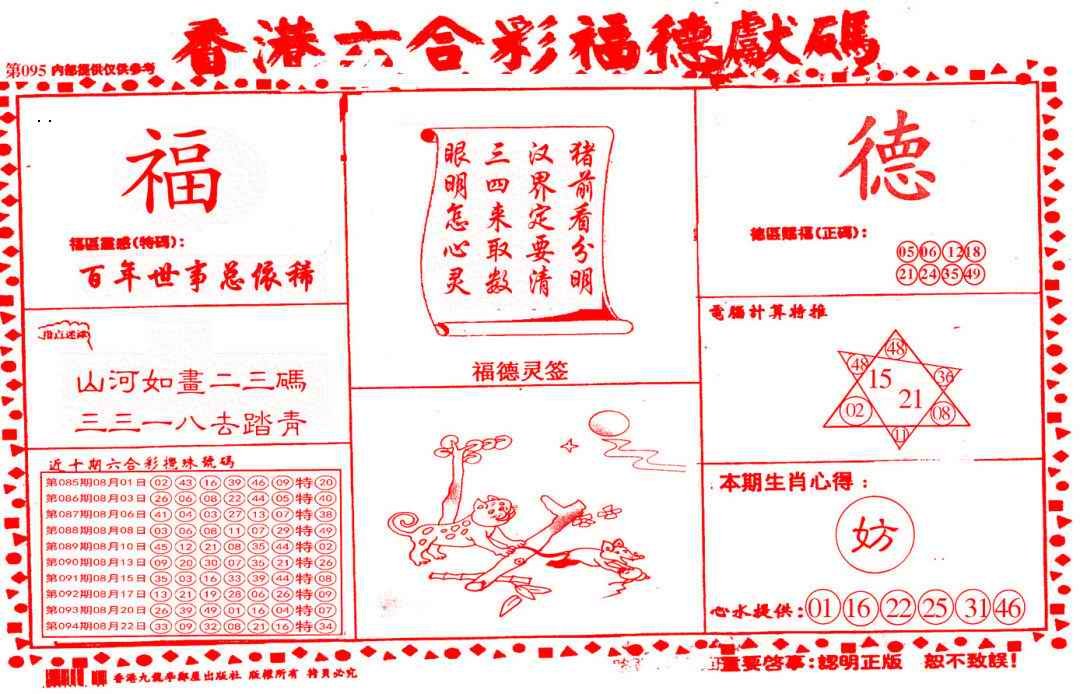 香港六合彩福德獻碼
第095 内部提供仅供参考
福
福區靈感(特碼):
百年世事总依稀
指点迷津
山河如畫二三碼
三三一八去踏青
近十期六合彩攪珠號碼
第085期08月01日 02 43 16 39 46 09 特 20
第086期08月03日 26 06 08 22 44 05 特 40
第087期08月06日 41 04 03 27 13 07 特 38
第088期08月08日 03 06 08 11 07 29 特 49
第089期08月10日 45 12 21 08 35 44 特 02
第090期08月13日 09 20 30 07 35 21 特 26
第091期08月15日 35 03 16 33 39 44 特 08
第092期08月17日 13 21 19 28 06 26 特 09
第093期08月20日 26 39 49 01 16 04 特 07
第094期08月22日 33 09 32 08 21 16 特 34
猪前看分明
汉界定要清
三四来取数
眼明怎心灵
福德灵签
德
德區賜福(正碼):
05 06 12 18
21 24 35 49
電腦計算特推
48
48 36
15
21
02 08
11
本期生肖心得:
妨
心水提供: 01 16 22 25 31 46
香港九龍學鄰屋出版社 版權所有 特員必究
重要啓事:認明正版 恕不致誤!